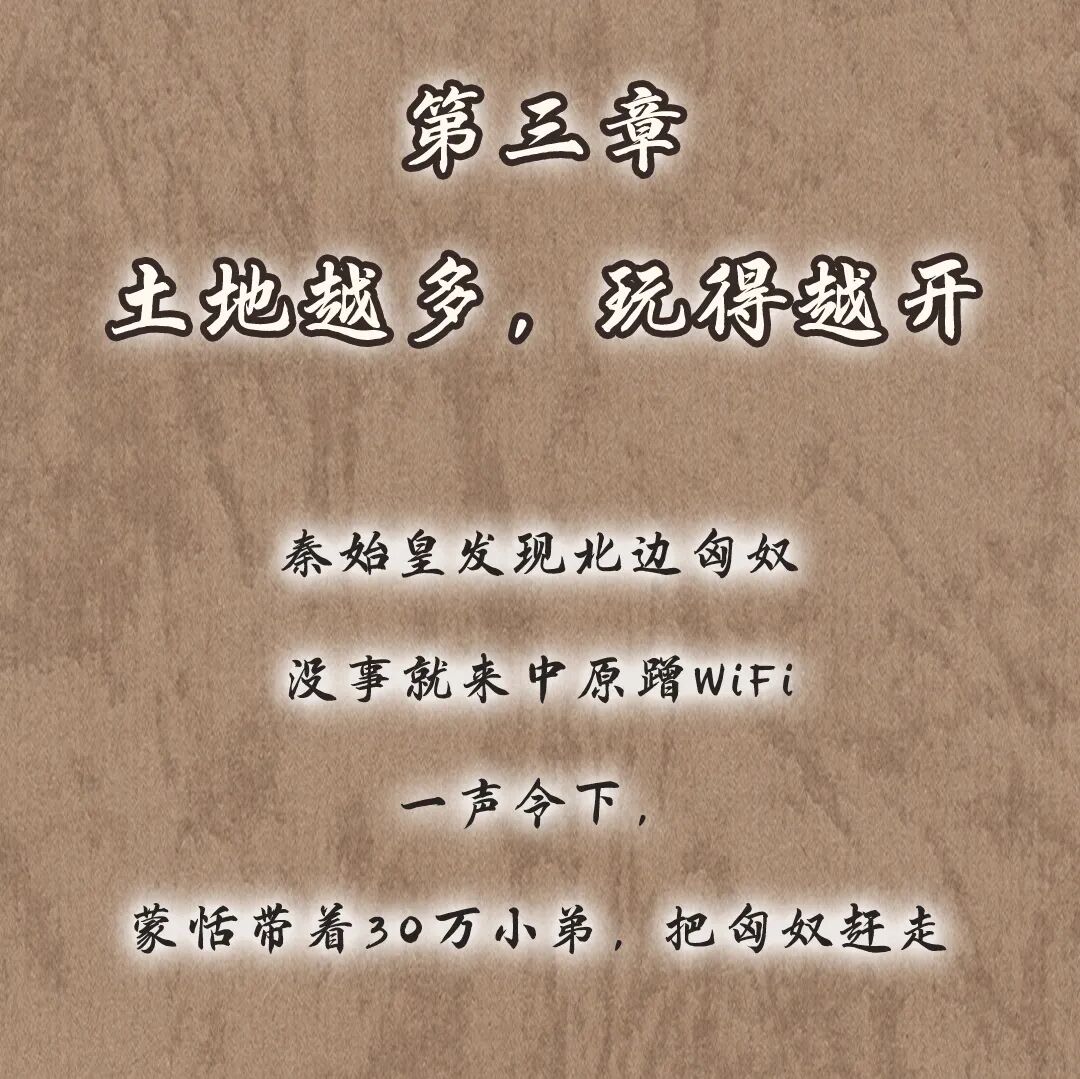 第三章
土地越多，玩得越开
秦始皇发现北边匈奴
没事就来中原蹭WiFi
一声令下，
蒙恬带着30万小弟，把匈奴赶走